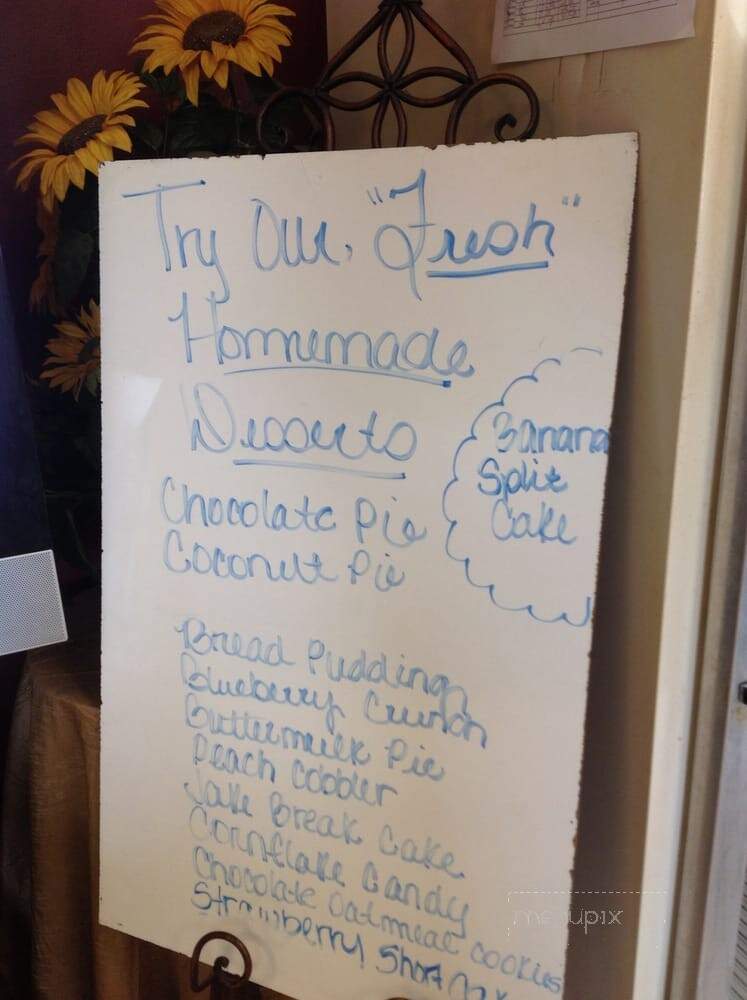 Try Our, "Fresh"
Homemade
Desserts
Chocolate Pie
Coconut Pie
Banana
Split
Cake
Bread Pudding
Blueberry Crunch
Buttermilk Pie
Peach Cobbler
Jake Break Cake
Cornflake Candy
Chocolate Oatmeal Cookies
Strawberry Short
menupix